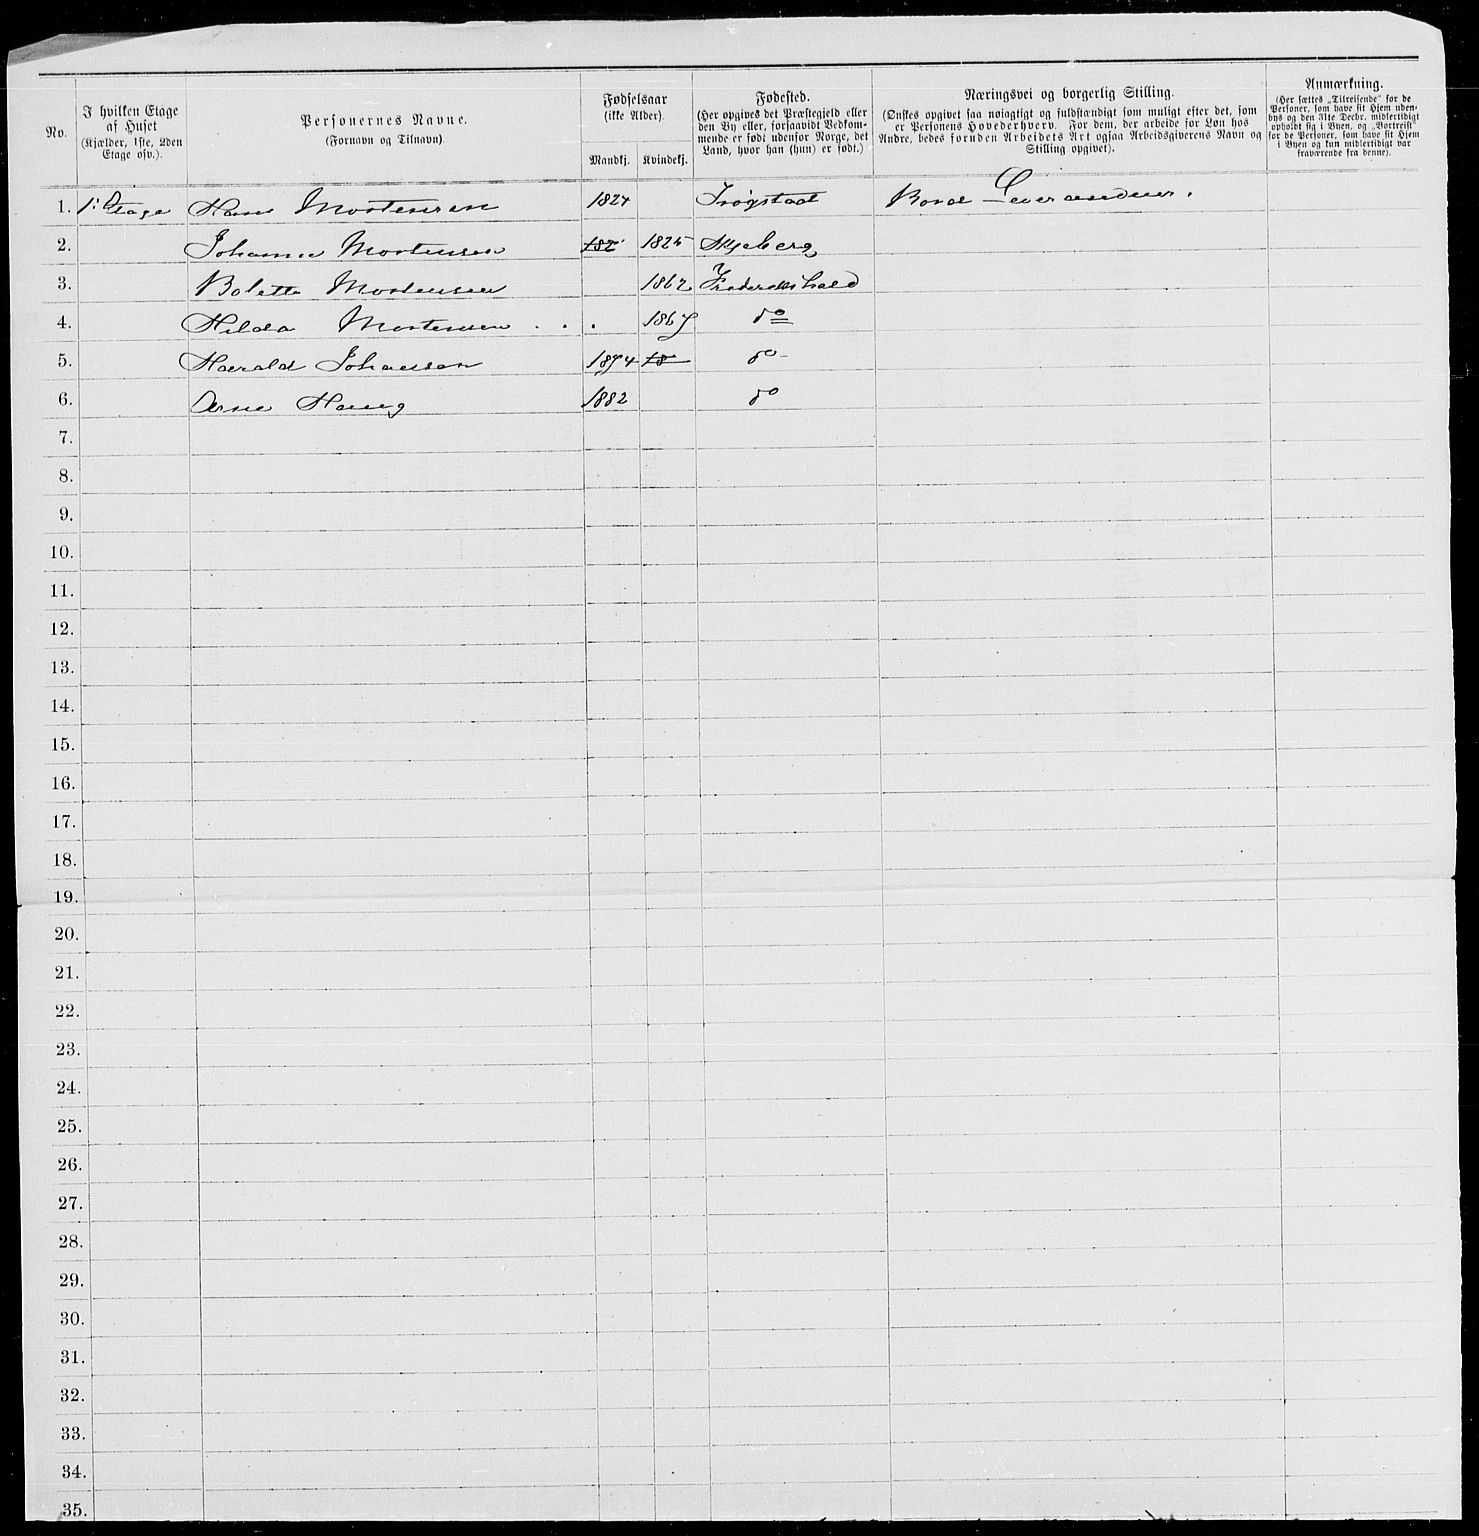 No.
I hvilken Etage
af Huset
(Kjælder, 1ste, 2den
Etage osv.).
Personernes Navne.
(Fornavn og Tilnavn).
Fødselsaar
(ikke Alder).
Mandkj. Kvindekj.
Fødested.
(Her opgives det Præstegjeld eller
den By eller, forsaavidt Vedkom-
mende er født udenfor Norge, det
Land, hvor han (hun) er født.)
Næringsvei og borgerlig Stilling.
(Ønskes opgivet saa nøiagtigt og fuldstændigt som muligt efter det, som
er Personens Hovederhverv. For dem, der arbeide for Løn hos
Andre, bedes foruden Arbeidets Art ogsaa Arbeidsgiverens Navn og
Stilling opgivet).
Anmærkning.
(Her sættes „Tilreisende“ for de
Personer, som have sit Hjem uden-
bys og den 31te Decbr. midlertidigt
opholdt sig i Byen, og „Bortreist“
for de Personer, som have sit Hjem
i Byen og kun midlertidigt var
fraværende fra denne).
1. 1. Etage Hans Mortensen 1824 Trøgstad Bord-Leverandeur.
2. Johanne Mortensen 182 1825 Skjeberg
3. Bolette Mortensen 1862 Frederikshald
4. Hilda Mortensen . . . 1867 do
5. Harald Johansen 1874 18 do
6. Arne Haug 1882 do
7.
8.
9.
10.
11.
12.
13.
14.
15.
16.
17.
18.
19.
20.
21.
22.
23.
24.
25.
26.
27.
28.
29.
30.
31.
32.
33.
34.
35.